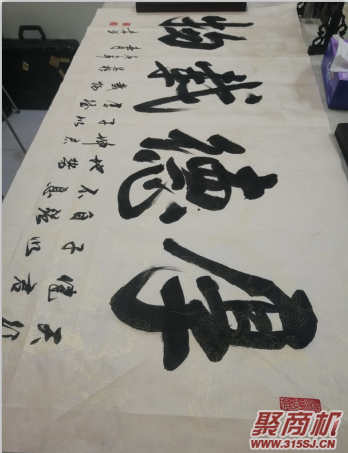 厚德載物
天行健君子以自强不息地势坤君子以厚德载物
聚商机
www.315SJ.CN